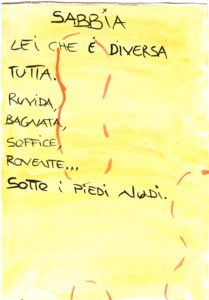 SABBIA
LEI CHE È DIVERSA
TUTTA.
RUVIDA,
BAGNATA,
SOFFICE,
ROVENTE...
SOTTO i PIEDI NUDI.